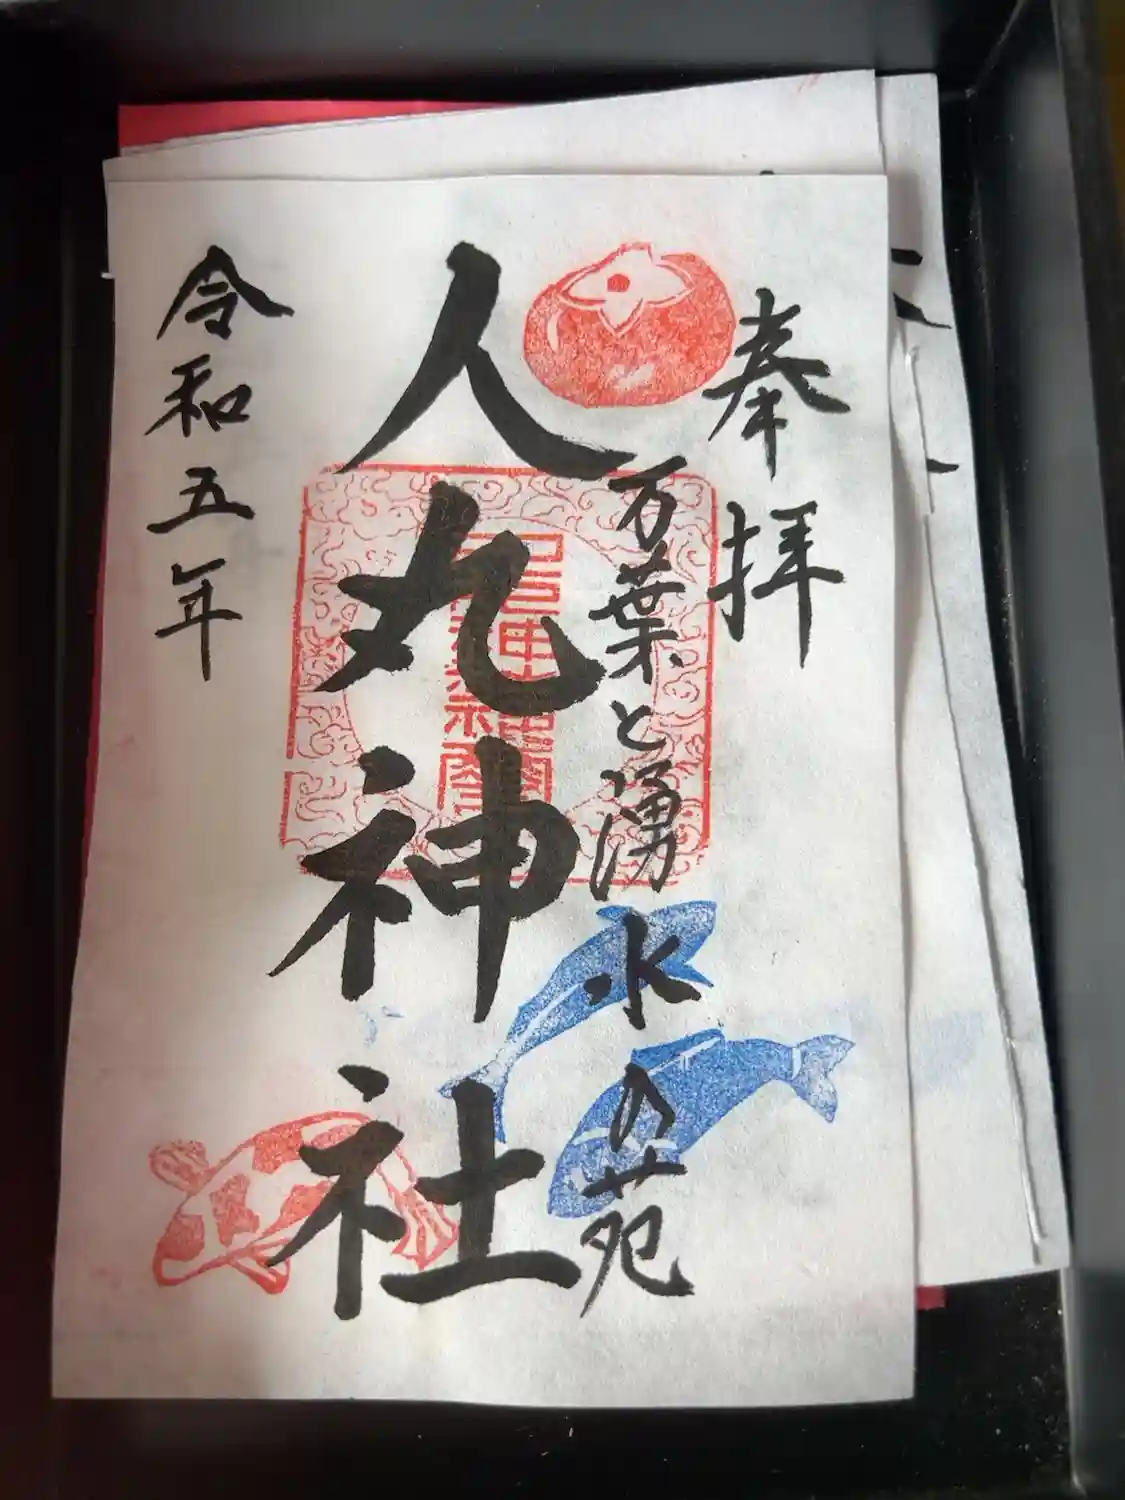 奉拝
万葉と湧水の苑
人丸神社
令和五年